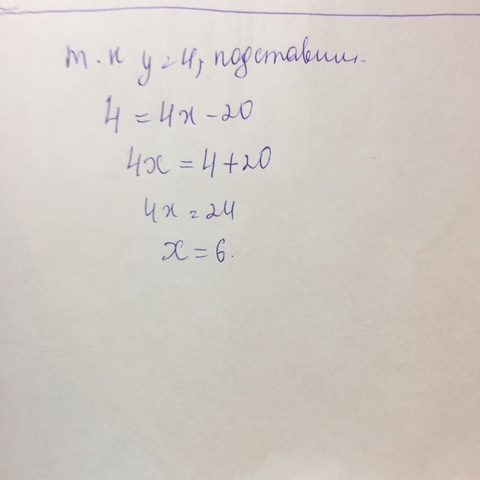 т.к y=4, подставим.
4 = 4x - 20
4x = 4 + 20
4x = 24
x = 6.